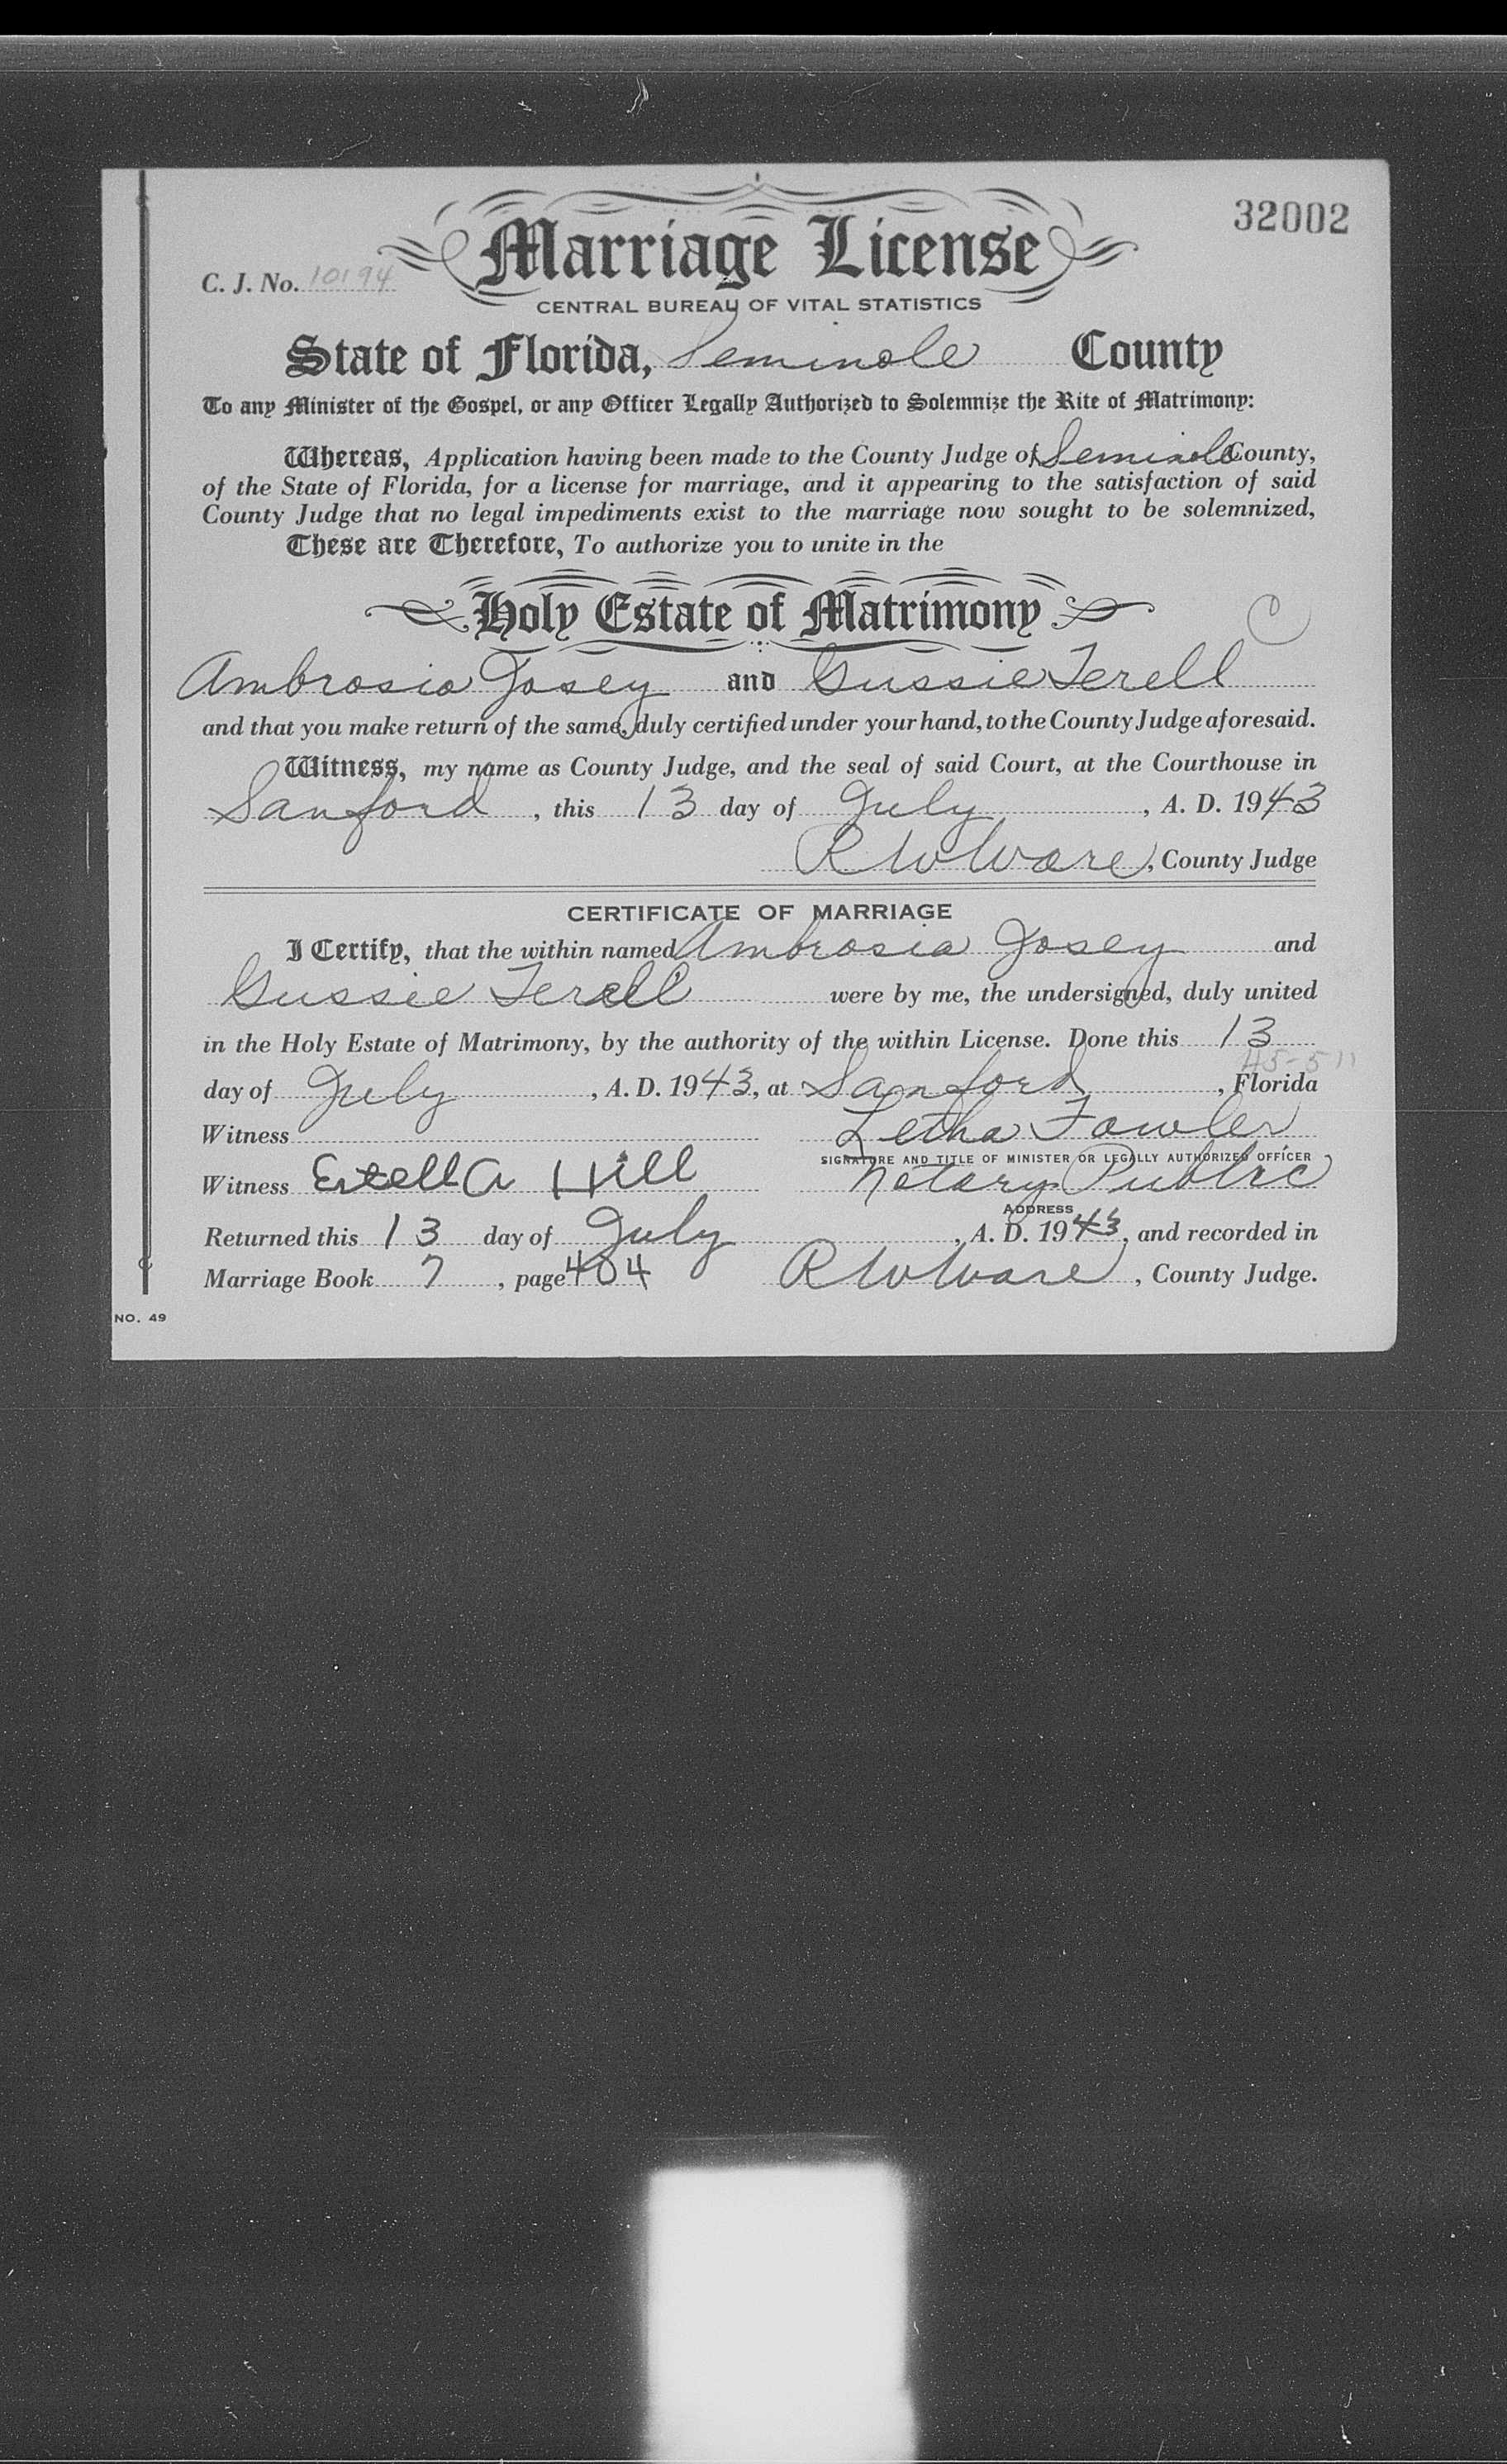 32002
Marriage License
C. J. No. 10194
CENTRAL BUREAU OF VITAL STATISTICS
State of Florida, Seminole County
To any Minister of the Gospel, or any Officer Legally Authorized to Solemnize the Rite of Matrimony:
Whereas, Application having been made to the County Judge of Seminole County,
of the State of Florida, for a license for marriage, and it appearing to the satisfaction of said
County Judge that no legal impediments exist to the marriage now sought to be solemnized,
These are Therefore, To authorize you to unite in the
Holy Estate of Matrimony
C
Ambrosia Josey and Gussie Terell
and that you make return of the same, duly certified under your hand, to the County Judge aforesaid.
Witness, my name as County Judge, and the seal of said Court, at the Courthouse in
Sanford, this 13 day of July, A. D. 1943
R W Ware, County Judge
CERTIFICATE OF MARRIAGE
I Certify, that the within named Ambrosia Josey and
Gussie Terell were by me, the undersigned, duly united
in the Holy Estate of Matrimony, by the authority of the within License. Done this 13
day of July, A. D. 1943, at Sanford, Florida
Witness Letha Fowler
SIGNATURE AND TITLE OF MINISTER OR LEGALLY AUTHORIZED OFFICER
Witness Estella Hill Notary Public
ADDRESS
Returned this 13 day of July, A. D. 1943, and recorded in
Marriage Book 7, page 404 R W Ware, County Judge.
NO. 49